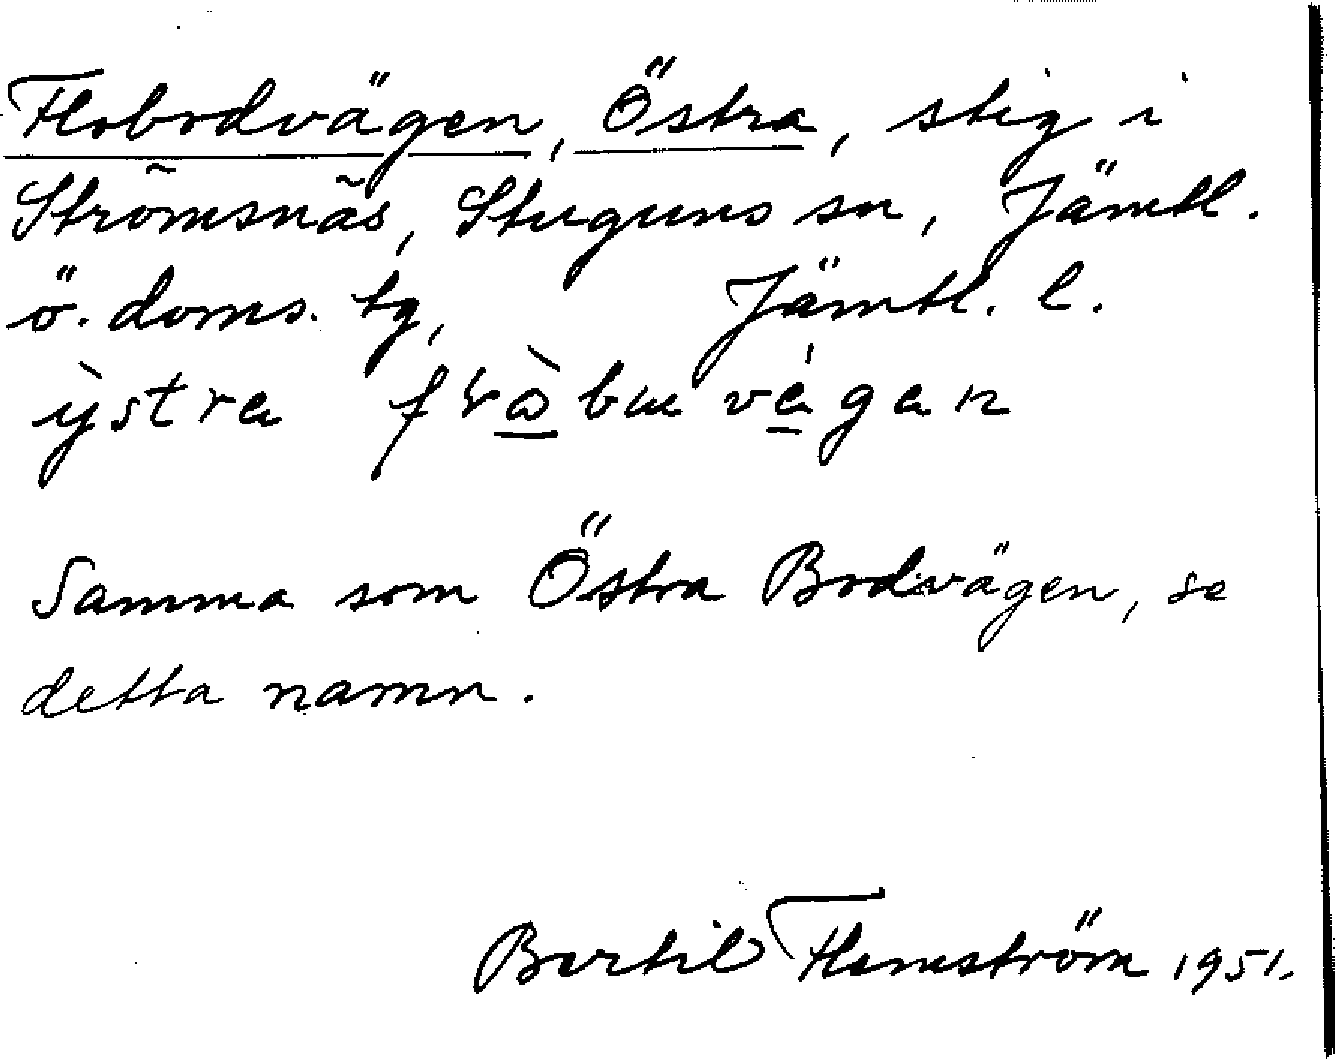 Flobodvägen, Östra, stig i
Strömsnäs, Stuguns sn, Jämtl.
ö. doms. tg, Jämtl. l.
Samma som Östra Bodvägen, se
detta namn.
Bertil Flemström 1951.